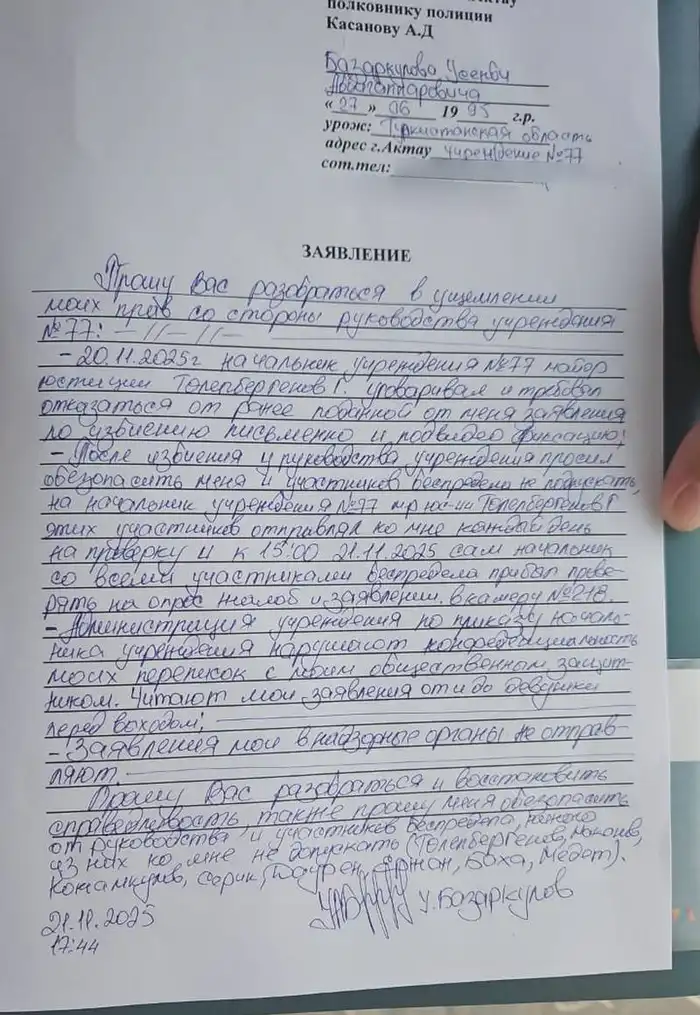 полковнику полиции
Касанову А.Д
Базаркулова Усенби
«27» 06 1995 г.р.
урож: Туркистанская область
адрес г.Актау учреждение №77
сот.тел:
ЗАЯВЛЕНИЕ
Прошу Вас разобраться в ущемлении
моих прав со стороны руководства учреждения
№77: — // — // —
- 20.11.2025г начальник учреждения №77 майор
юстиции Толепбергенов Г. уговаривал и требовал
отказаться от ранее поданной от меня заявления
по избиению письменно и подвидео фиксацию;
- После избиения у руководства учреждения просил
обезопасить меня и участников беспредела не подпускать,
на начальник учреждения №77 м-р юс-ии Толепбергенов Г
этих участников отправлял ко мне каждый день
на проверку и к 15:00 21.11.2025 сам начальник
со всеми участниками беспредела прибыл прове-
рять на опрос жалоб и заявлении в камеру №218.
- Администрация учреждения по приказу началь-
ника учреждения нарушают конфеденциальность
моих переписок с моим общественным защит-
ником. Читают мои заявления от и до девушки
перед выходом;
- Заявления мои в надзорные органы не отправ-
ляют.
Прошу Вас разобраться и восстановить
справедливость, также прошу меня обезопасить
от руководства и участников беспредела, никого
из них ко мне не допускать (Толепбергенов,
Кожамкулов, Серик, Бауржан, Ержан, Баха, Медет).
У.Базаркулов
21.11.2025
17:44